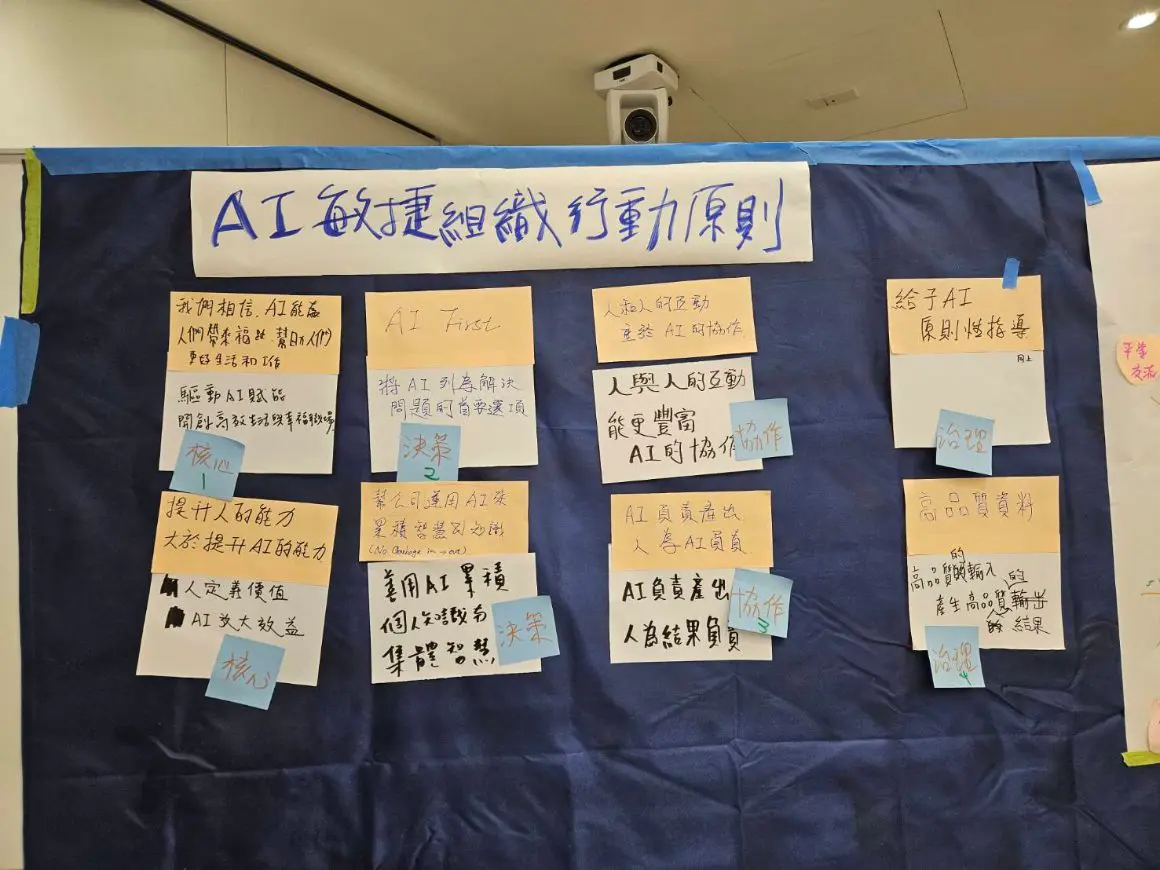 AI敏捷組織行動原則
我們相信,AI能為
人們帶來福祉,幫助人們
更好生活和工作
驅動AI賦能
開創高效生活與幸福職場
核心
1
AI First
將AI列為解決
問題的首要選項
決策
2
人和人的互動
重於AI的協作
人與人的互動
能更豐富
AI的協作
協作
給予AI
原則性指導
同上
治理
提升人的能力
大於提升AI的能力
人定義價值
AI放大效益
核心
幫公司運用AI來
累積智慧到知識
(No Garbage in → out)
善用AI累積
個人知識與
集體智慧
決策
AI負責產出
人為AI負責
AI負責產出
人為結果負責
協作
3
高品質資料
高品質的輸入
產生高品質的
結果
治理
4
平等
交流